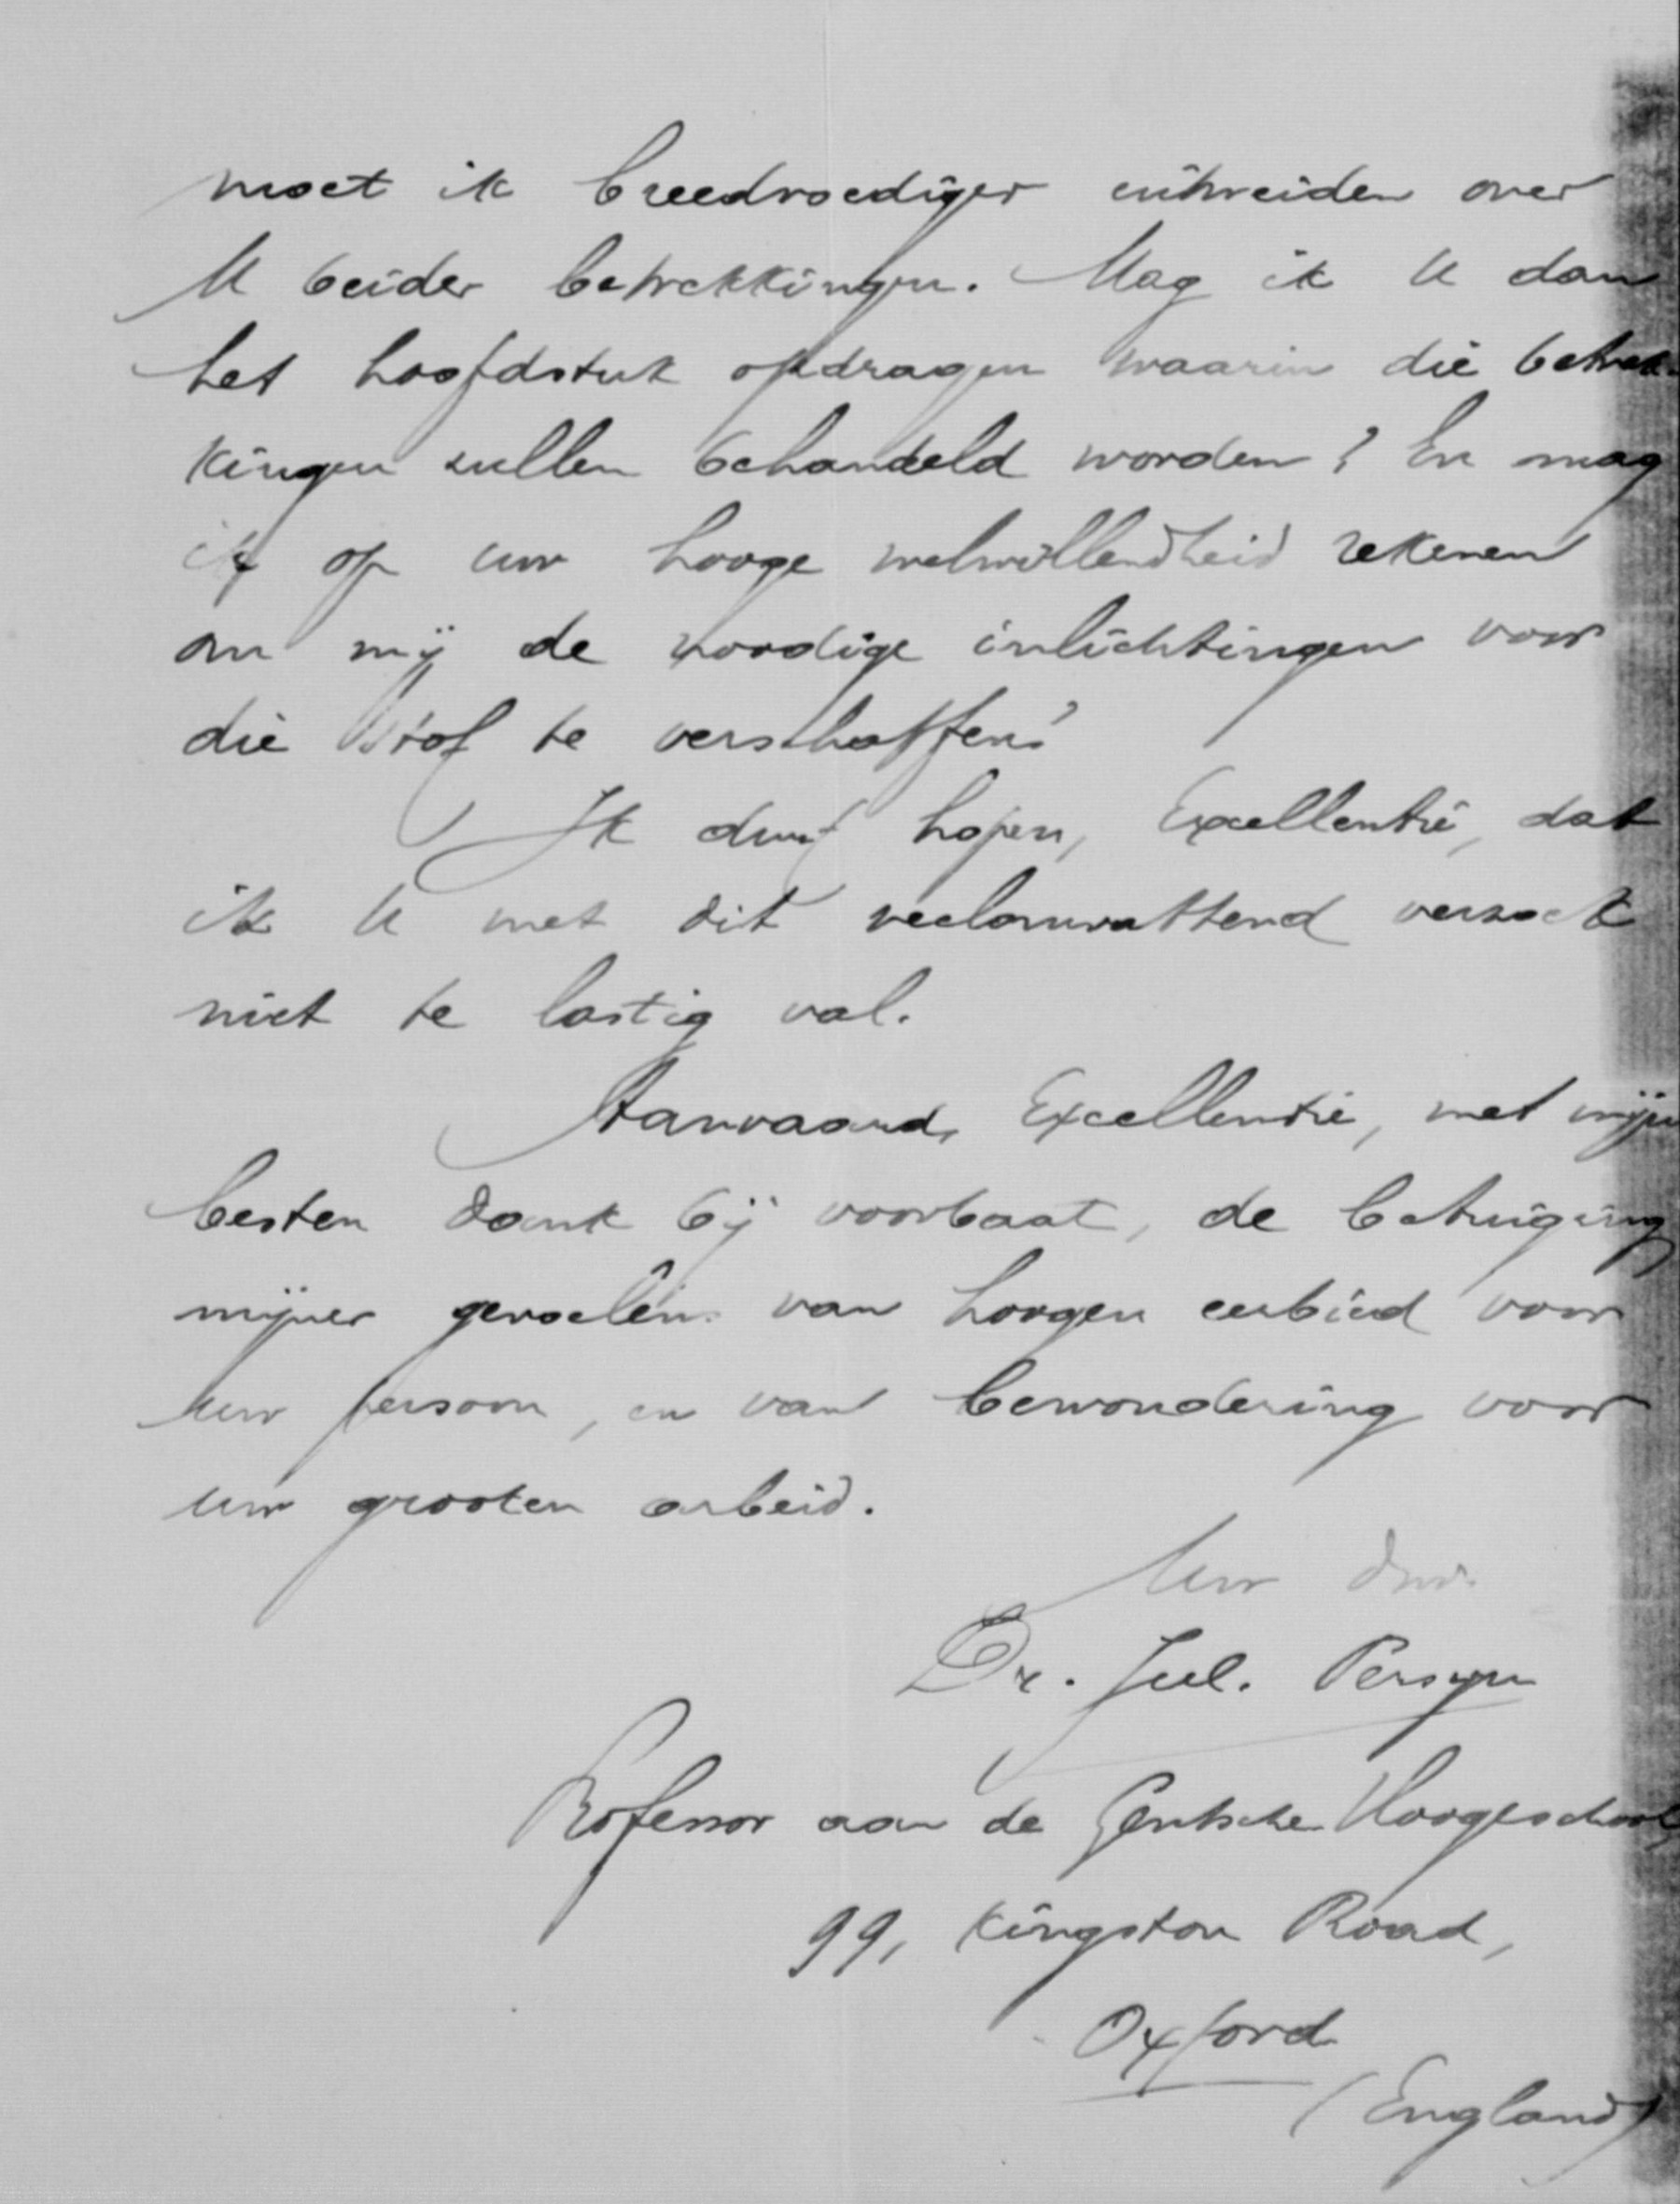 moet ik breedvoediger uitweiden over
U beider betrekkingen. Mag ik U dan
het hoofdstuk opdragen waarin die betrek-
kingen zullen behandeld worden? En mag
ik op uw hooge welwillendheid rekenen
om mij de noodige inlichtingen voor
die stof te verschaffen?
Ik durf hopen, Excellentie, dat
ik U met dit veelomvattend verzoek
niet te lastig val.
Aanvaard, Excellentie, met mijn
besten dank bij voorbaat, de betuiging
mijner gevoelens van hoogen eerbied voor
uw persoon, en van bewondering voor
uw grooten arbeid.
Uw dw.
Dr. Jul. Persyn
Professor aan de Gentsche Hoogeschool,
99, Kingston Road,
Oxford
(England)